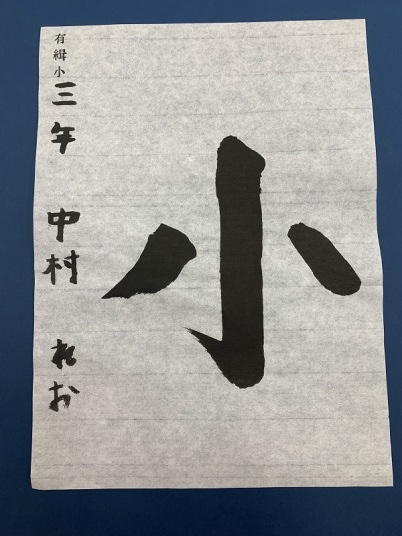 小
有緝小
三年 中村 れお